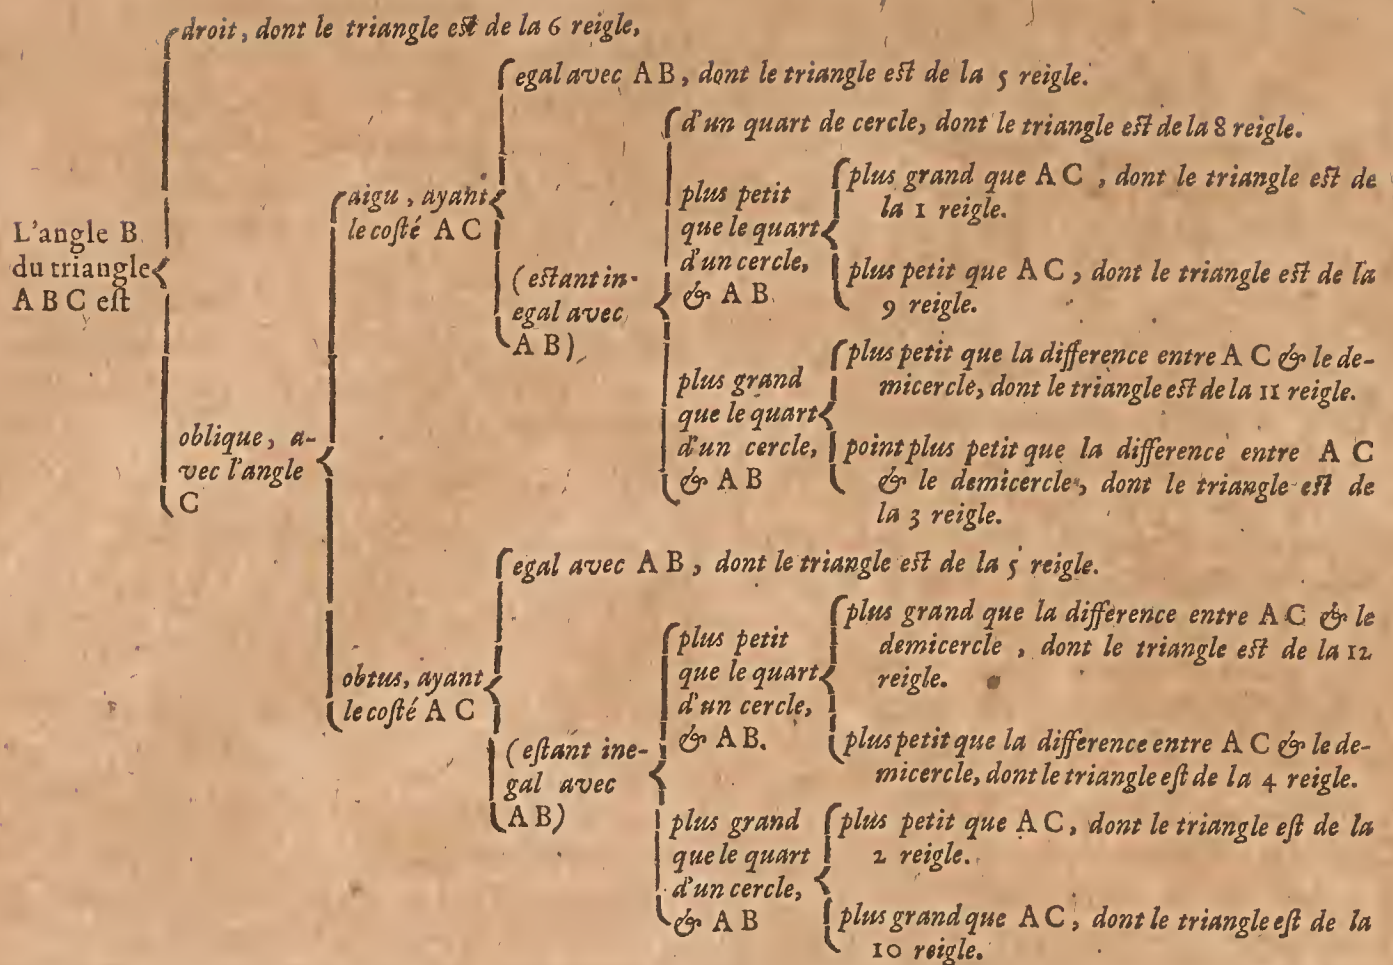 droit, dont le triangle est de la 6 reigle,
L'angle B
du triangle
A B C est
oblique, a-
vec l'angle
C
aigu, ayant
le costé A C
egal avec A B, dont le triangle est de la 5 reigle.
(estant in-
egal avec
A B)
d'un quart de cercle, dont le triangle est de la 8 reigle.
plus petit
que le quart
d'un cercle,
& A B
plus grand que A C , dont le triangle est de
la 1 reigle.
plus petit que A C, dont le triangle est de la
9 reigle.
plus grand
que le quart
d'un cercle,
& A B
plus petit que la difference entre A C & le de-
micercle, dont le triangle est de la 11 reigle.
point plus petit que la difference entre A C
& le demicercle, dont le triangle est de
la 3 reigle.
obtus, ayant
le costé A C
egal avec A B, dont le triangle est de la 5 reigle.
(estant ine-
gal avec
A B)
plus petit
que le quart
d'un cercle,
& A B.
plus grand que la difference entre A C & le
demicercle , dont le triangle est de la 12
reigle.
plus petit que la difference entre A C & le de-
micercle, dont le triangle est de la 4 reigle.
plus grand
que le quart
d'un cercle,
& A B
plus petit que A C, dont le triangle est de la
2 reigle.
plus grand que A C, dont le triangle est de la
10 reigle.